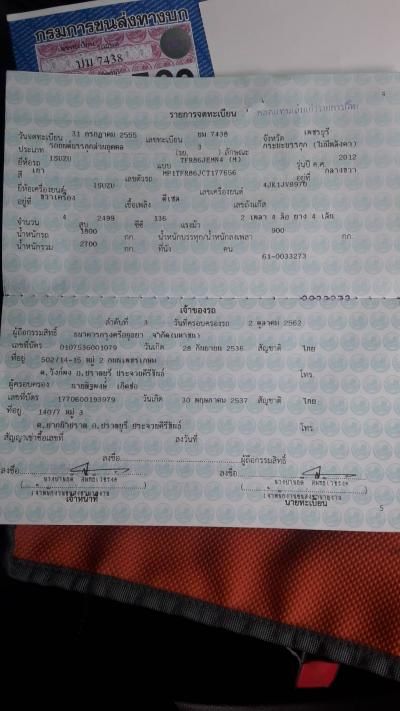 กรมการขนส่งทางบก
บม 7438
4
รายการจดทะเบียน
วันจดทะเบียน 31 กรกฎาคม 2555 เลขทะเบียน บม 7438 จังหวัด เพชรบุรี
ประเภท รถยนต์บรรทุกส่วนบุคคล (รย. 3 ) ลักษณะ กระบะบรรทุก (ไม่มีหลังคา)
ยี่ห้อรถ ISUZU แบบ TFR86JEMN4 (M) รุ่นปี ค.ศ. 2012
สี เทา เลขตัวรถ MP1TFR86JCT177656 อยู่ที่ กลางขวา
ยี่ห้อเครื่องยนต์ ISUZU เลขเครื่องยนต์
อยู่ที่ ขวาเครื่อง เชื้อเพลิง ดีเซล เลขถังแก๊ส
จำนวน 4 สูบ 2499 ซีซี 136 แรงม้า 2 เพลา 4 ล้อ ยาง 4 เส้น
น้ำหนักรถ 1800 กก. น้ำหนักบรรทุก/น้ำหนักลงเพลา 900 กก.
น้ำหนักรวม 2700 กก. ที่นั่ง คน
61-0033273
เจ้าของรถ
ลำดับที่ 3 วันที่ครอบครองรถ 2 ตุลาคม 2562
ผู้ถือกรรมสิทธิ์ ธนาคารกรุงศรีอยุธยา จำกัด(มหาชน)
เลขที่บัตร 0107536001079 วันเกิด 28 กันยายน 2536 สัญชาติ ไทย
ที่อยู่ 502/14-15 หมู่ 2 ถนนเพชรเกษม
ต.วังก์พง อ.ปราณบุรี ประจวบคีรีขันธ์ โทร.
ผู้ครอบครอง
เลขที่บัตร 1770600193979 วันเกิด 30 พฤษภาคม 2537 สัญชาติ ไทย
ที่อยู่ 14077 หมู่ 3
ต.ปากน้ำปราณ อ.ปราณบุรี ประจวบคีรีขันธ์ โทร.
สัญญาเช่าซื้อเลขที่ ลงวันที่
ลงชื่อ ผู้ถือกรรมสิทธิ์
ลงชื่อ ลงชื่อ
เจ้าหน้าที่ นายทะเบียน
5